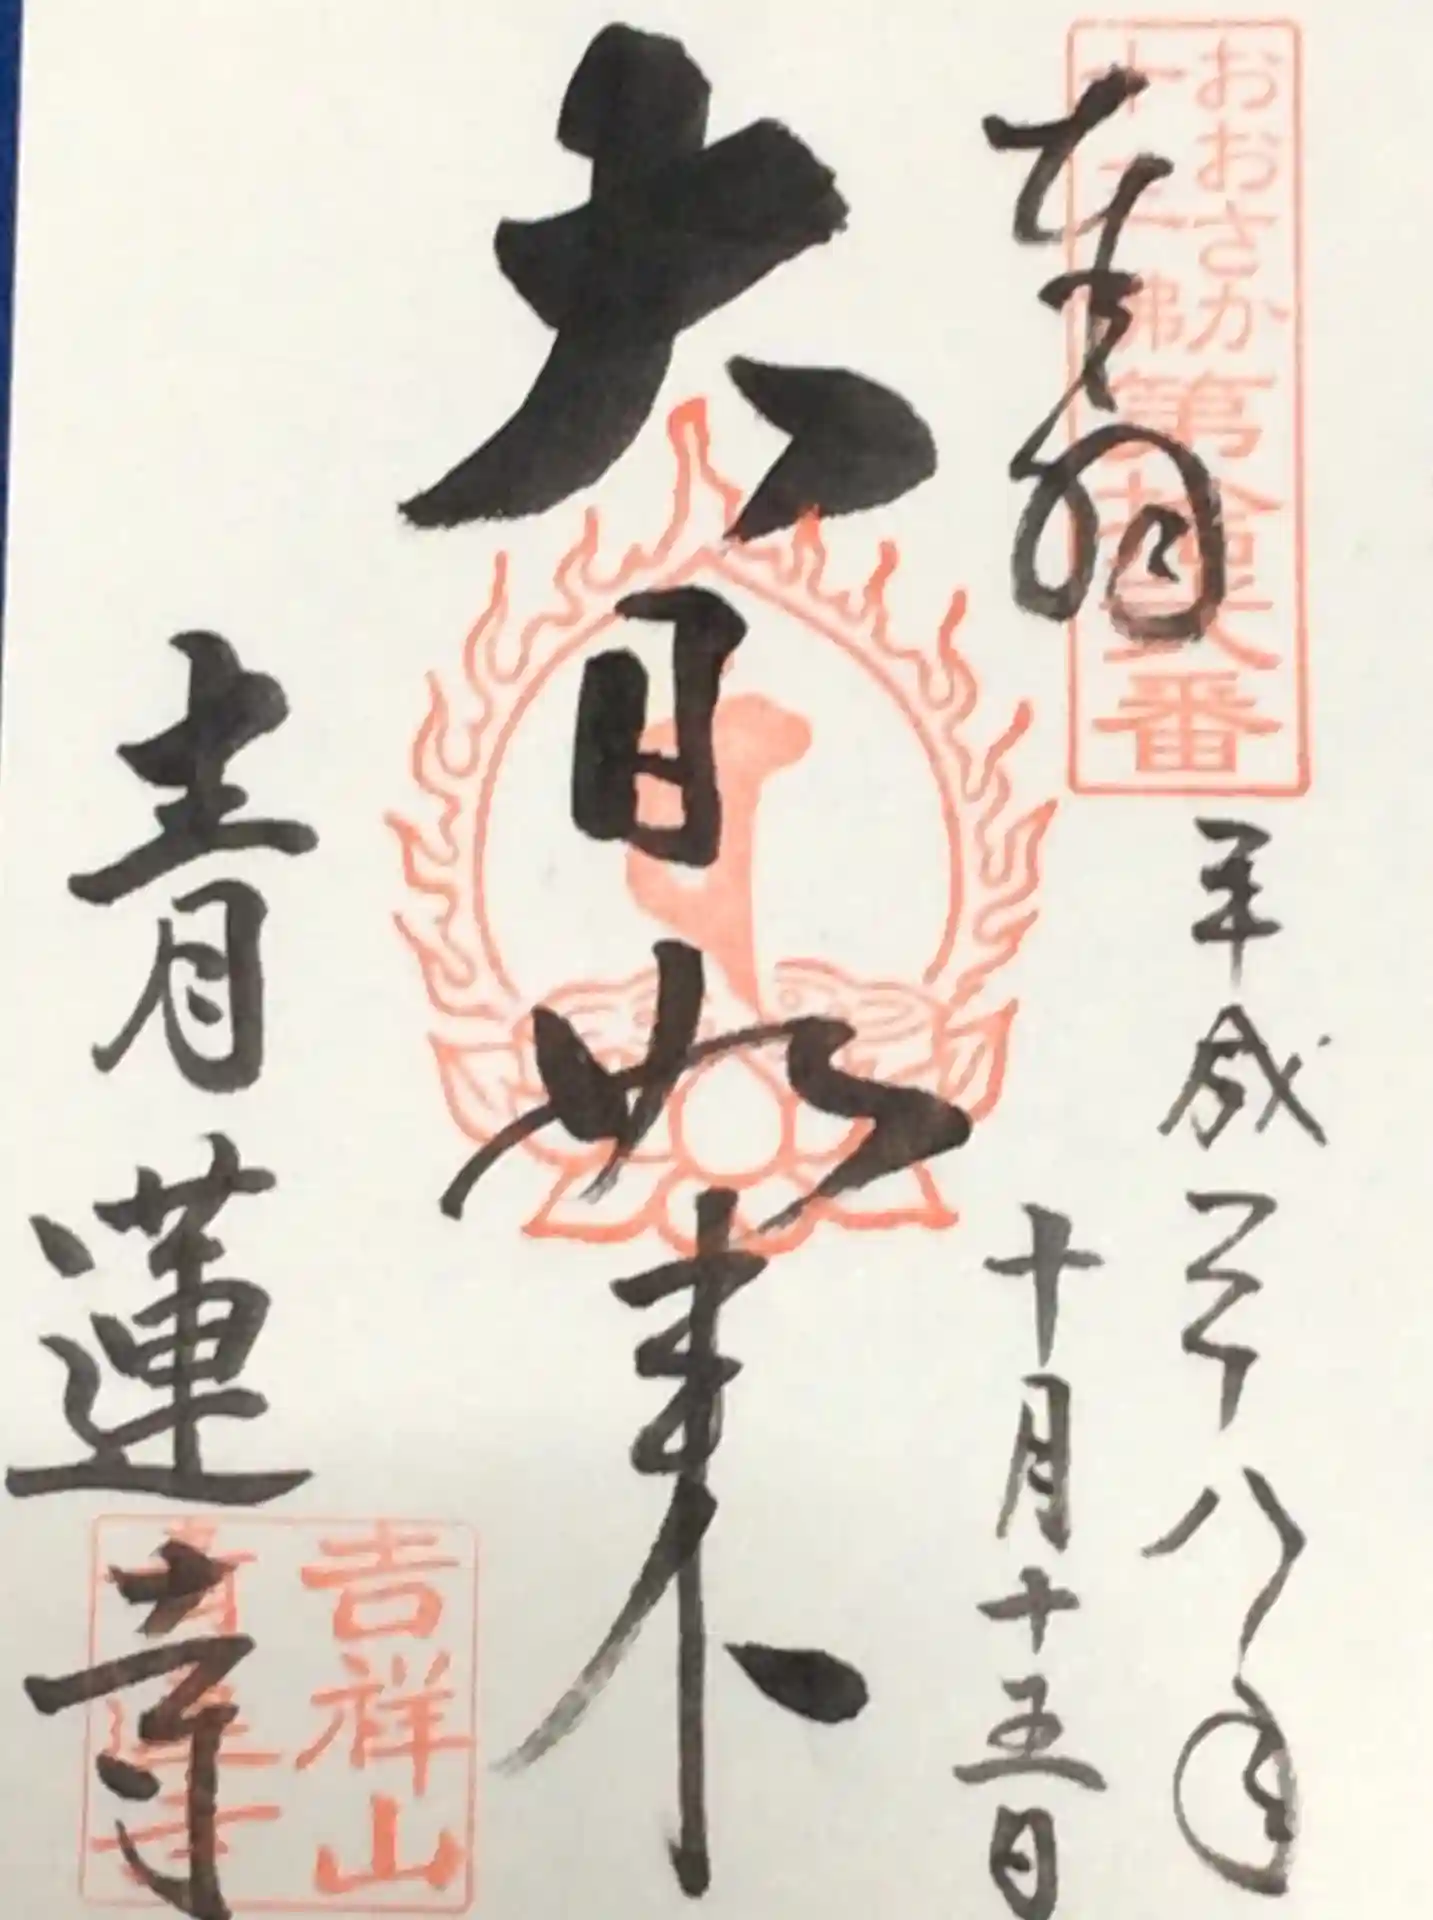 おおさか
十三佛
第拾弐番
奉拝
平成二十八年
十月十五日
大日如来
吉祥山
青蓮寺
青蓮寺